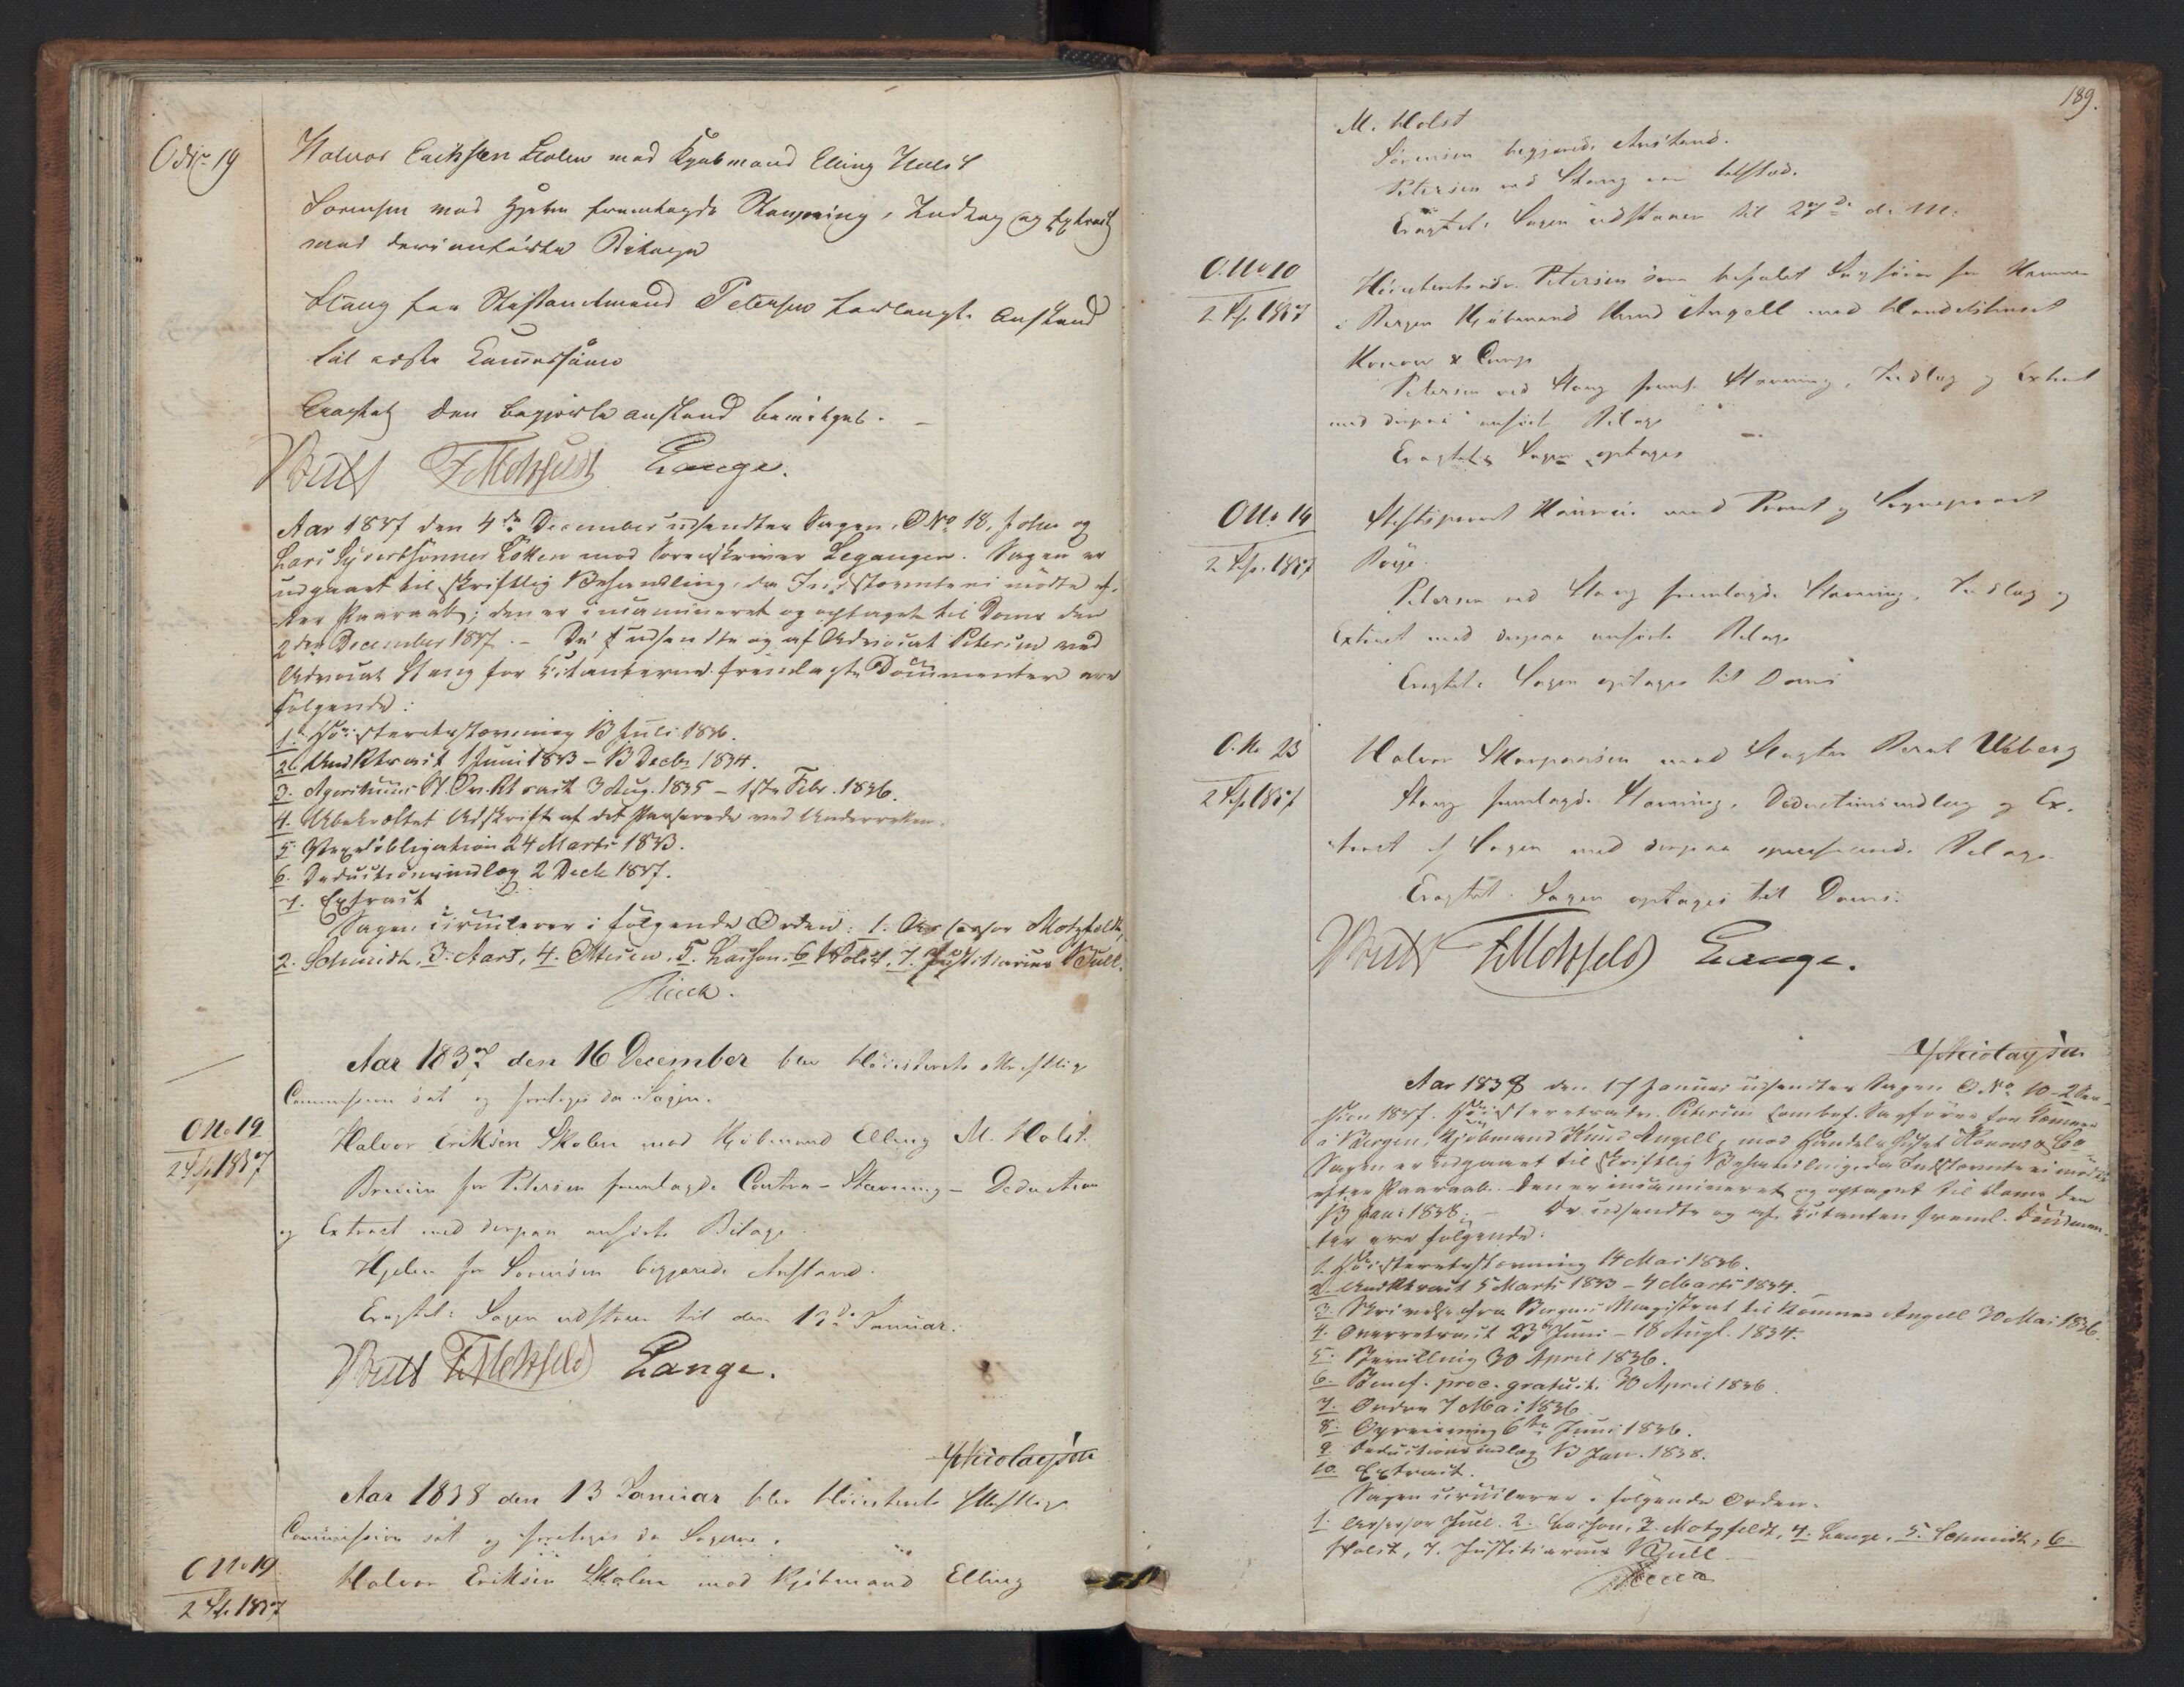 O No 19
Halvor Erichsen Holen mod Kjøbmand Elling Holst
Sørensen med Hjelm fremlagde Stevning, Indlæg og Extract
med deri anførte Bilage
Stang for Petersen forlangte Anstand
til næste
Eragtet den begjerte anstand bevilget.
Bull FMotzfeldt Lange.
Aar 1837 den 4de December udsendtes Sagen, O No 18, John og
Lars Syvertsønner Lökken mod Sorenskriver Leganger. Sagen er
udgaaet til skriftlig Behandling, da Indstevnte ei mödte ef-
ter Paaraab; den er incamineret og optaget til Doms den
2den December 1837. – De udsendte og af Advocat Petersen ved
Advocat Stang for Citanterne fremlagte Documenter ere
fölgende:
1. Höiesteretsstevning 13 Juli 1836.
2. UndRtsact 1 Juni 1833 – 13 Decbr 1834.
3. Agershuus St. Ov. Rt. sact 3 Aug. 1835 – 1ste Febr. 1836.
4. Ubekræftet Udskrift af det Passerede ved Underretten.
5. Obligation 24 Marts 1833.
6. Deductionsindlæg 2 Decb 1837.
7. Extract
Sagen circulerer i fölgende Orden: 1. Assessor Motzfeldt,
2. Schmidt, 3. Aars, 4. Ottesen, 5. Lasson, 6 Holst, 7. Justitiarius Bull.
Aar 1837 den 16 December blev Höiesterets skriftlige
Commission sat og foretoges da Sagen.
O No 19
2 Ss. 1837
Halvor Eriksen Skolen mod Kjöbmand Elling M. Holst.
for Petersen fremlagde Contra-Stevning – Deduction
og Extract med derpaa anførte Bilage.
Hjelm for Sörensen begjærede Anstand.
Eragtet: Sagen udstaaer til den 13de Januar.
Bull FMotzfeldt Lange.
Nicolaysen
Aar 1838 den 13 Januar blev Höiesterets skriftlige
Commission sat og foretoges da Sagerne.
O No 19
2 Ss. 1837
Halvor Eriksen Skolen mod Kjöbmand Elling
189.
M. Holst
Sörensen begjærede Anstand.
Petersen ved Stang
Eragtet: Sagen udstaaer til 27de d. M.
O. No 10
2 Ss. 1837
Höiesteretsadv. Petersen som befalet Sagförer for Kæmner
i Bergen Kjöbmand Knud Angell mod Handelshuset
Konow & Comp
Petersen ved Stang freml. Stevning, Indlæg og Extract
med derpaa anført Bilage
Eragtet: Sagen optages
O No 14
2 Ss. 1837
mod Provst og Sogneprest
Petersen ved Stang fremlagde Stevning, Indlæg og
Extract med derpaa anførte Bilage
Eragtet: Sagen optages til Doms
O. No 23
2 Ss. 1837
Halvor mod Bernt Wiberg
Stang fremlagde Stevning, Deductionsindlæg og Ex-
tract af Sagen med derpaa Bilage
Eragtet: Sagen optages til Doms.
Bull FMotzfeldt Lange.
Nicolaysen
Aar 1838 den 17 Januar udsendtes Sagen O No 10 – 2 Ses-
sion 1837. Höiesteretsadv. Petersen som bef. Sagförer for Kæmner
i Bergen, Kjöbmand Knud Angell, mod Handelshuset Konow & Co
Sagen er udgaaet til skriftlig Behandling, da Indstevnte ei mödte
efter Paaraab. Den er incamineret og optaget til Doms den
13 Jan: 1838. – De udsendte og af Citanten freml. Documen-
ter ere fölgende:
1. Höiesteretsstevning 14 Mai 1836.
2. UndRtsact 5 Marts 1833 – 4 Marts 1834.
3. Skrivelse fra Bergens Magistrat til Kæmner Angell 30 Mai 1836.
4. Overretsact 23 Juni – 18 Augt. 1834.
5. Bevilling 30 April 1836.
6. Benef. proc. gratuit. 30 April 1836.
7. Ordre 7 Mai 1836
8. Opreisning 6te Juni 1836.
9. Deductionsindlæg 13 Jan. 1838.
10. Extract.
Sagen circulerer i fölgende Orden.
1. Assessor Juel. 2. Lasson, 3. Motzfeldt, 4. Lange, 5. Schmidt, 6.
Holst, 7. Justitiarius Bull